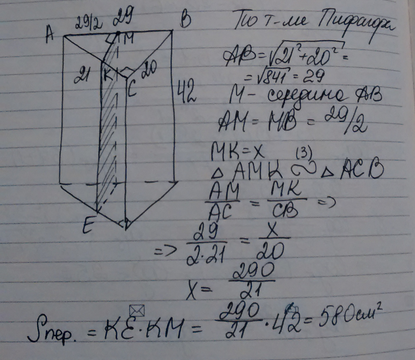 29/2
29
A
M
B
21
K
20
C
42
E
По т-ме Пифагора
AB = √21² + 20² =
= √841 = 29
M - середина AB
AM = MB = 29/2
MK = x
(3)
△ AMK ∾ △ ACB
AM/AC = MK/CB =>
=> 29/2·21 = x/20
x = 290/21
Sпер. = KE · KM = 290/21 · 42 = 580 см²